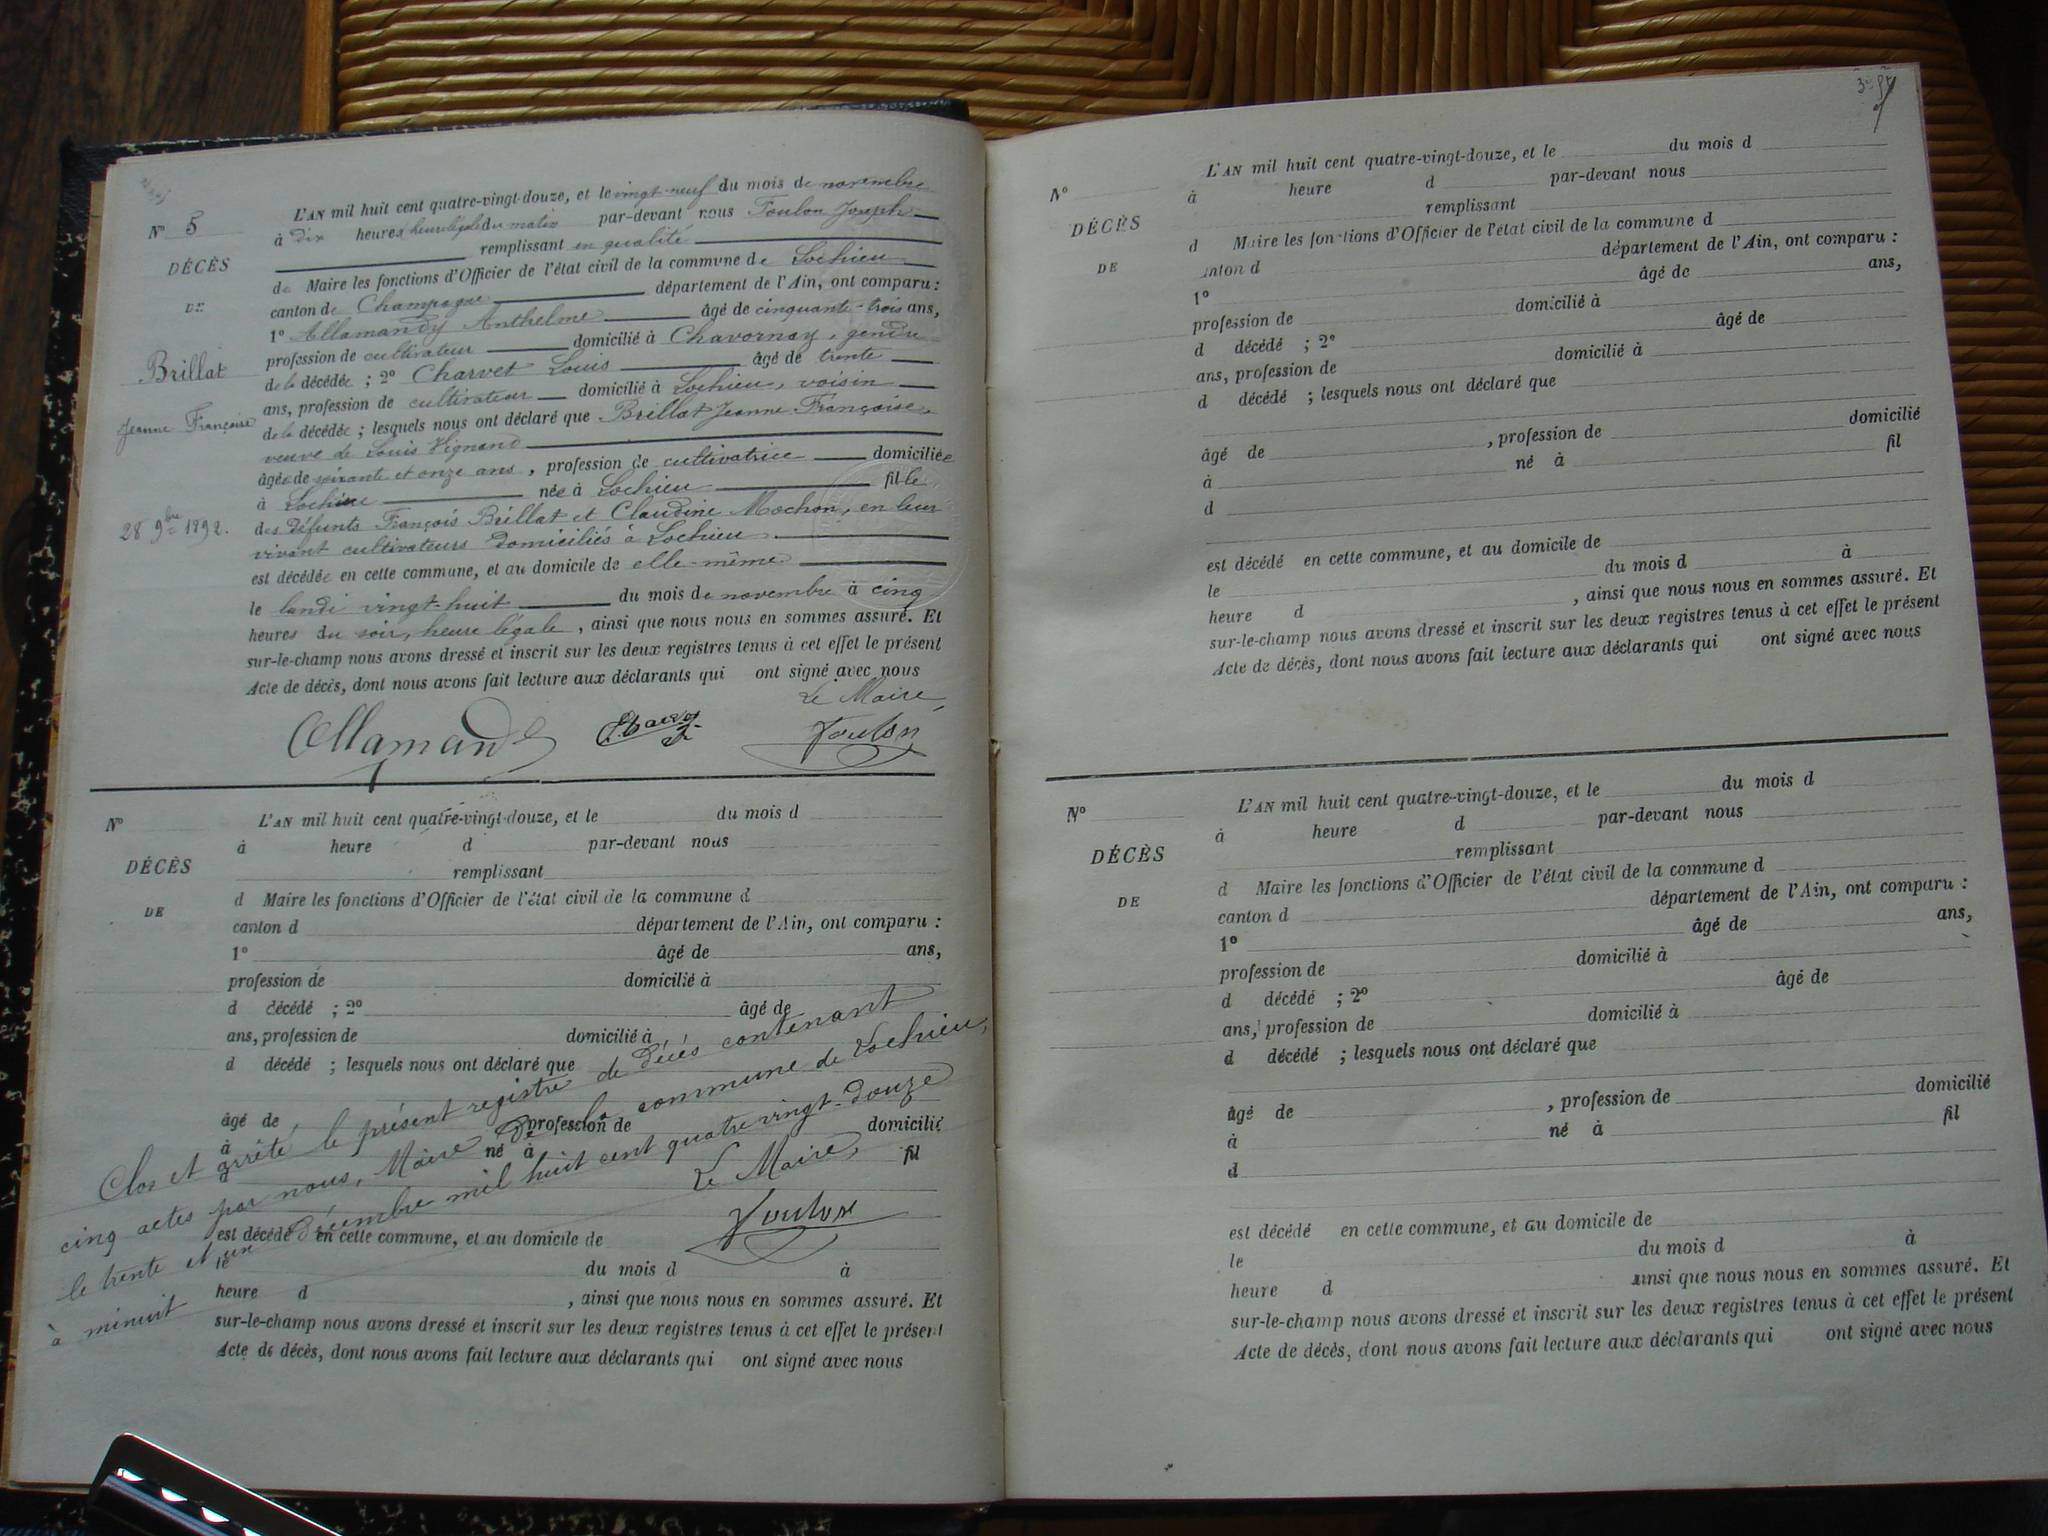 N° 5
DÉCÈS
DE
Brillat
Jeanne Françoise
28 9bre 1892.
L'AN mil huit cent quatre-vingt-douze, et le vingt-neuf du mois de novembre
à dix heures heure légale du matin par-devant nous Toulon Joseph
remplissant en qualité
de Maire les fonctions d'Officier de l'état civil de la commune de Lochieu
canton de Champagne département de l'Ain, ont comparu :
1° Allamandy Anthelme âgé de cinquante-trois ans,
profession de cultivateur domicilié à Chavornay, gendre
de la décédée ; 2° Charvet Louis âgé de trente
ans, profession de cultivateur domicilié à Lochieu, voisin
de la décédée ; lesquels nous ont déclaré que Brillat Jeanne Françoise,
veuve de Louis Vignand
âgée de soixante et onze ans , profession de cultivatrice domiciliée
à Lochieu née à Lochieu fille
des défunts François Brillat et Claudine Mochon, en leur
vivant cultivateurs domiciliés à Lochieu
est décédée en cette commune, et au domicile de elle-même
le lundi vingt-huit du mois de novembre à cinq
heures du soir, heure légale , ainsi que nous nous en sommes assuré. Et
sur-le-champ nous avons dressé et inscrit sur les deux registres tenus à cet effet le présent
Acte de décès, dont nous avons fait lecture aux déclarants qui ont signé avec nous
Le Maire,
Allamandy Charvet Toulon
N°
DÉCÈS
DE
L'AN mil huit cent quatre-vingt-douze, et le du mois d
à heure d par-devant nous
remplissant
d Maire les fonctions d'Officier de l'état civil de la commune d
canton d département de l'Ain, ont comparu :
1° âgé de ans,
profession de domicilié à
d décédé ; 2° âgé de
ans, profession de domicilié à
d décédé ; lesquels nous ont déclaré que
âgé de , profession de domicilié
à né à fil
d
est décédé en cette commune, et au domicile de
le du mois d à
heure d , ainsi que nous nous en sommes assuré. Et
sur-le-champ nous avons dressé et inscrit sur les deux registres tenus à cet effet le présent
Acte de décès, dont nous avons fait lecture aux déclarants qui ont signé avec nous
Clos et arrêté le présent registre de décès contenant
cinq actes par nous, Maire de la commune de Lochieu,
le trente et un décembre mil huit cent quatre vingt-douze
à minuit
Le Maire,
Toulon
N°
DÉCÈS
DE
L'AN mil huit cent quatre-vingt-douze, et le du mois d
à heure d par-devant nous
remplissant
d Maire les fonctions d'Officier de l'état civil de la commune d
anton d département de l'Ain, ont comparu :
1° âgé de ans,
profession de domicilié à
d décédé ; 2° âgé de
ans, profession de domicilié à
d décédé ; lesquels nous ont déclaré que
âgé de , profession de domicilié
à né à fil
d
est décédé en cette commune, et au domicile de
le du mois d à
heure d , ainsi que nous nous en sommes assuré. Et
sur-le-champ nous avons dressé et inscrit sur les deux registres tenus à cet effet le présent
Acte de décès, dont nous avons fait lecture aux déclarants qui ont signé avec nous
N°
DÉCÈS
DE
L'AN mil huit cent quatre-vingt-douze, et le du mois d
à heure d par-devant nous
remplissant
d Maire les fonctions d'Officier de l'état civil de la commune d
canton d département de l'Ain, ont comparu :
1° âgé de ans,
profession de domicilié à
d décédé ; 2° âgé de
ans, profession de domicilié à
d décédé ; lesquels nous ont déclaré que
âgé de , profession de domicilié
à né à fil
d
est décédé en cette commune, et au domicile de
le du mois d à
heure d ainsi que nous nous en sommes assuré. Et
sur-le-champ nous avons dressé et inscrit sur les deux registres tenus à cet effet le présent
Acte de décès, dont nous avons fait lecture aux déclarants qui ont signé avec nous